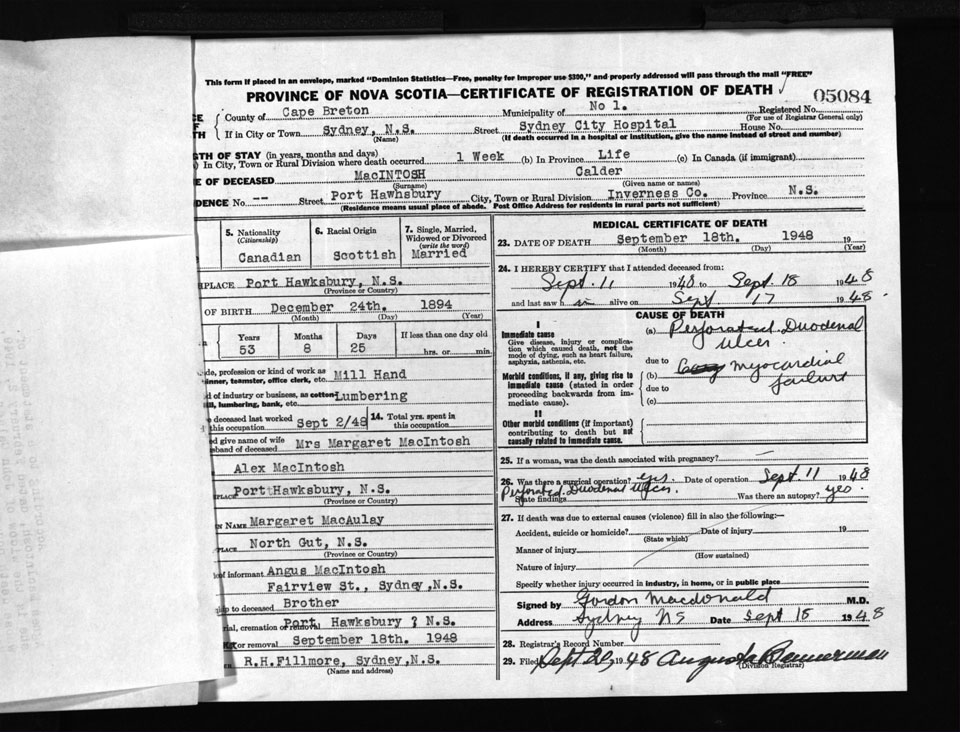 This form if placed in an envelope, marked "Dominion Statistics—Free, penalty for improper use $300," and properly addressed will pass through the mail "FREE"
PROVINCE OF NOVA SCOTIA—CERTIFICATE OF REGISTRATION OF DEATH
05084
County of Cape Breton Municipality of No 1. Registered No.
(For use of Registrar General only)
If in City or Town Sydney, N.S. Street Sydney City Hospital House No.
(Name) (If death occurred in a hospital or institution, give the name instead of street and number)
TH OF STAY (in years, months and days)
In City, Town or Rural Division where death occurred 1 Week (b) In Province Life (c) In Canada (if immigrant)
E OF DECEASED MacINTOSH Calder
(Surname) (Given name or names)
DENCE No. -- Street Port Hawhsbury City, Town or Rural Division Inverness Co. Province N.S.
(Residence means usual place of abode. Post Office Address for residents in rural parts not sufficient)
5. Nationality (Citizenship)
Canadian
6. Racial Origin
Scottish
7. Single, Married, Widowed or Divorced (write the word)
Married
HPLACE Port Hawksbury, N.S.
(Province or Country)
OF BIRTH December 24th. 1894
(Month) (Day) (Year)
Years Months Days If less than one day old
53 8 25 hrs. or min.
de, profession or kind of work as
inner, teamster, office clerk, etc. Mill Hand
d of industry or business, as cotton Lumbering
ill, lumbering, bank, etc.
e deceased last worked
this occupation Sept 2/48
14. Total yrs. spent in this occupation
ed give name of wife
sband of deceased Mrs Margaret MacIntosh
Alex MacIntosh
PLACE Port Hawksbury, N.S.
(Province or Country)
N NAME Margaret MacAulay
PLACE North Gut, N.S.
(Province or Country)
of informant Angus MacIntosh
Fairview St., Sydney, N.S.
hip to deceased Brother
rial, cremation or removal Port Hawksbury ? N.S.
or removal September 18th. 1948
ER R.H.Fillmore, Sydney, N.S.
(Name and address)
MEDICAL CERTIFICATE OF DEATH
23. DATE OF DEATH September 18th. 1948 19
(Month) (Day) (Year)
24. I HEREBY CERTIFY that I attended deceased from:
Sept. 11 1948 to Sept. 18 1948
and last saw him alive on Sept. 17 1948.
CAUSE OF DEATH
I
Immediate cause
Give disease, injury or complication which caused death, not the mode of dying, such as heart failure, asphyxia, asthenia, etc.
(a) Perforated Duodenal
ulcer.
due to
Morbid conditions, if any, giving rise to immediate cause (stated in order proceeding backwards from immediate cause).
(b) Myocardial
failure
due to
(c)
II
Other morbid conditions (if important) contributing to death but not causally related to immediate cause.
25. If a woman, was the death associated with pregnancy? —
26. Was there a surgical operation? yes. Date of operation Sept. 11 1948
State findings Perforated Duodenal Ulcer. Was there an autopsy? yes.
27. If death was due to external causes (violence) fill in also the following:—
Accident, suicide or homicide? Date of injury 19
(State which)
Manner of injury
(How sustained)
Nature of injury
Specify whether injury occurred in industry, in home, or in public place
Signed by Gordon Macdonald M.D.
Address Sydney NS Date Sept 18 1948
28. Registrar's Record Number
29. Filed Sept 20, 1948 Augusta Bannerman
(Division Registrar)